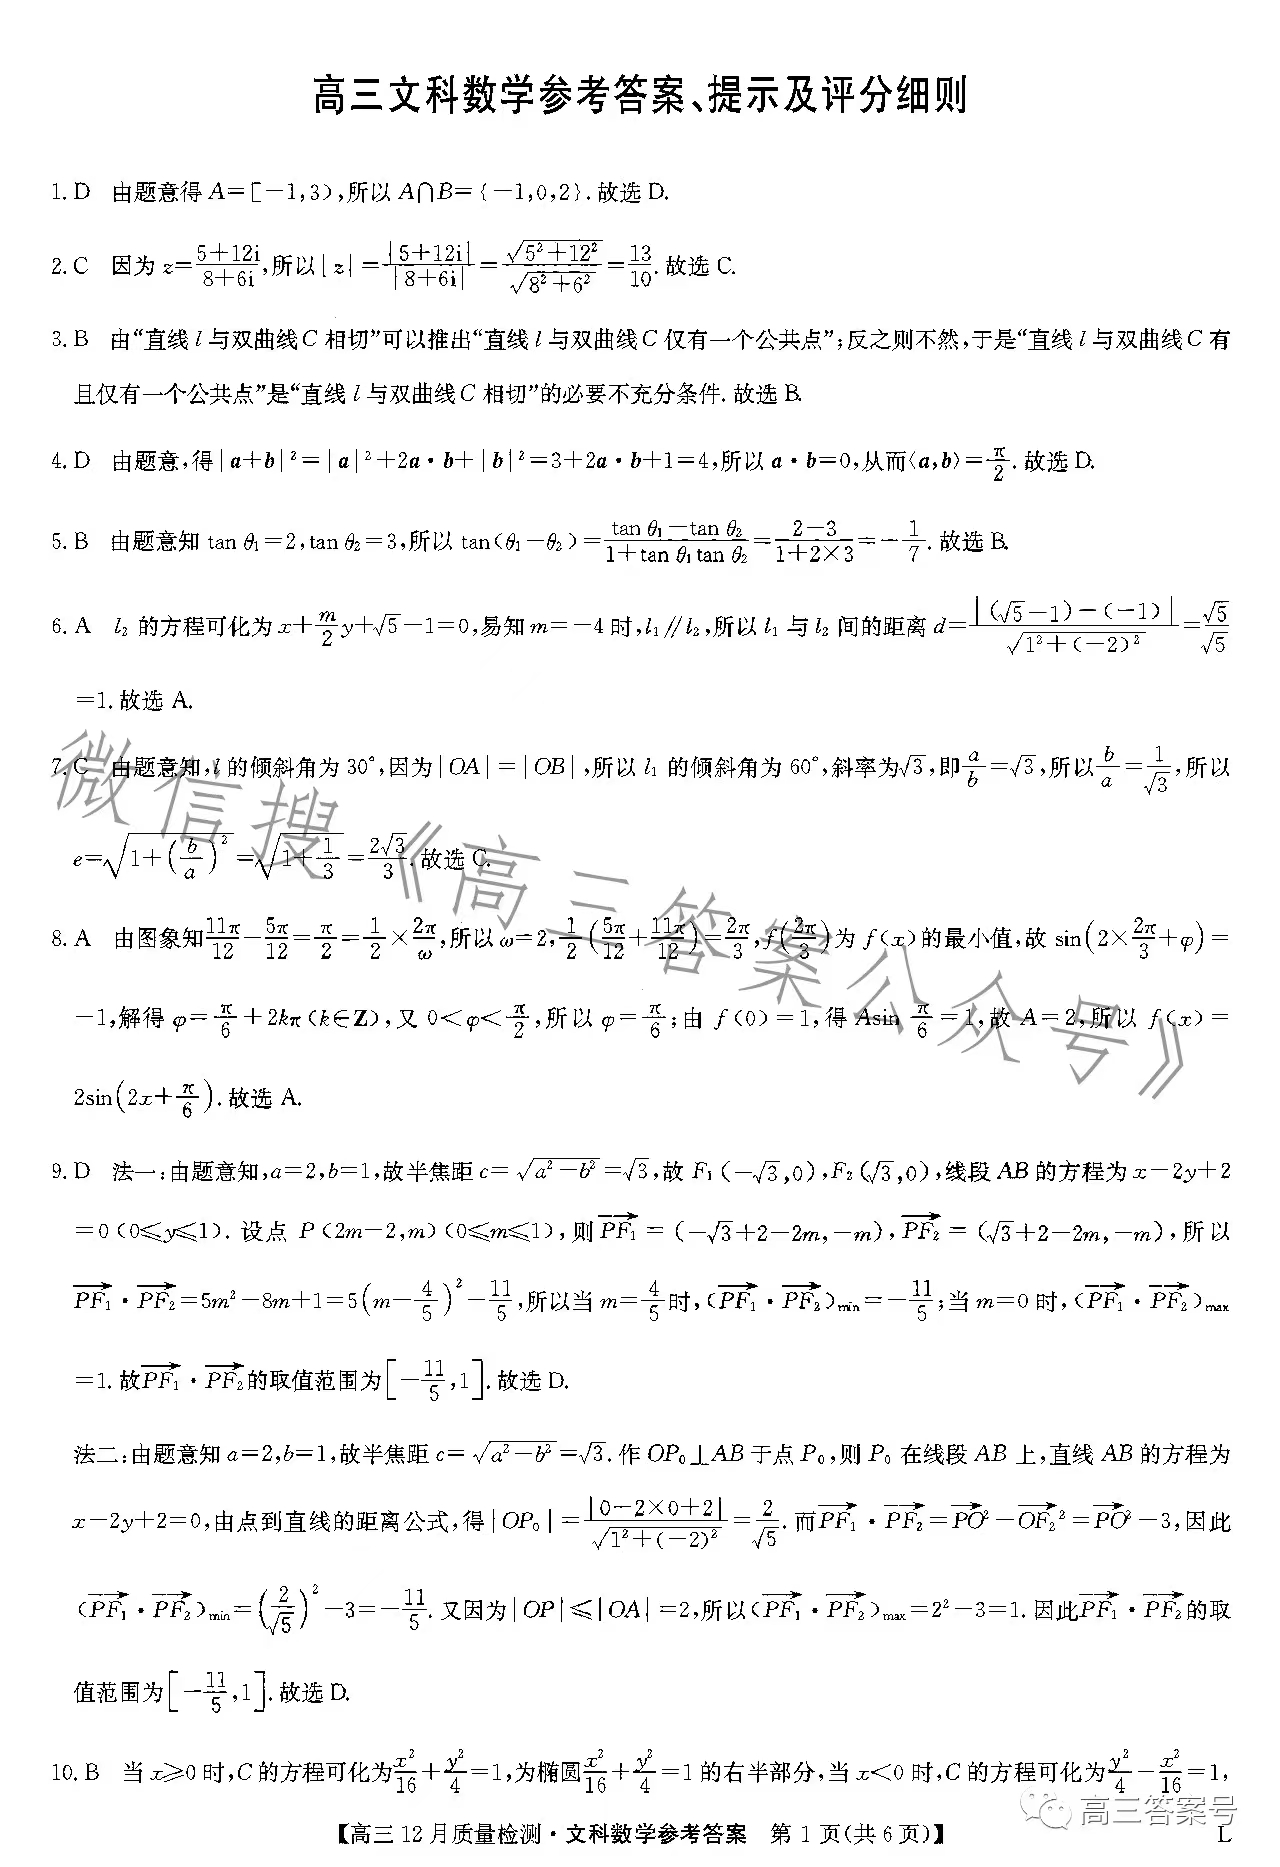 高三文科数学参考答案、提示及评分细则
1. D 由题意得 A=[-1,3),所以 A∩B={-1,0,2}.故选 D.
2. C 因为 z=\frac{5+12i}{8+6i},所以|z|=\frac{|5+12i|}{|8+6i|}=\frac{\sqrt{5²+12²}}{\sqrt{8²+6²}}=\frac{13}{10}.故选 C.
3. B 由“直线 l 与双曲线 C 相切”可以推出“直线 l 与双曲线 C 仅有一个公共点”;反之则不然,于是“直线 l 与双曲线 C 有
且仅有一个公共点”是“直线 l 与双曲线 C 相切”的必要不充分条件.故选 B.
4. D 由题意,得|a+b|²=|a|²+2a·b+|b|²=3+2a·b+1=4,所以 a·b=0,从而⟨a,b⟩=\frac{π}{2}.故选 D.
5. B 由题意知 tan θ₁=2,tan θ₂=3,所以 tan(θ₁-θ₂)=\frac{tan θ₁-tan θ₂}{1+tan θ₁tan θ₂}=\frac{2-3}{1+2×3}=-\frac{1}{7}.故选 B.
6. A l₂ 的方程可化为 x+\frac{m}{2}y+\sqrt{5}-1=0,易知 m=-4 时,l₁∥l₂,所以 l₁ 与 l₂ 间的距离 d=\frac{|(\sqrt{5}-1)-(-1)|}{\sqrt{1²+(-2)²}}=\frac{\sqrt{5}}{\sqrt{5}}
=1.故选 A.
7. C 由题意知,l 的倾斜角为 30°,因为|OA|=|OB|,所以 l₁ 的倾斜角为 60°,斜率为\sqrt{3},即\frac{a}{b}=\sqrt{3},所以\frac{b}{a}=\frac{1}{\sqrt{3}},所以
e=\sqrt{1+(\frac{b}{a})²}=\sqrt{1+\frac{1}{3}}=\frac{2\sqrt{3}}{3}.故选 C.
8. A 由图象知\frac{11π}{12}-\frac{5π}{12}=\frac{π}{2}=\frac{1}{2}×\frac{2π}{ω},所以 ω=2,\frac{1}{2}(\frac{5π}{12}+\frac{11π}{12})=\frac{2π}{3},f(\frac{2π}{3})为 f(x)的最小值,故 sin(2×\frac{2π}{3}+φ)=
-1,解得 φ=\frac{π}{6}+2kπ(k∈Z),又 0<φ<\frac{π}{2},所以 φ=\frac{π}{6};由 f(0)=1,得 Asin \frac{π}{6}=1,故 A=2,所以 f(x)=
2sin(2x+\frac{π}{6}).故选 A.
9. D 法一:由题意知,a=2,b=1,故半焦距 c=\sqrt{a²-b²}=\sqrt{3},故 F₁(-\sqrt{3},0),F₂(\sqrt{3},0),线段 AB 的方程为 x-2y+2
=0(0≤y≤1).设点 P(2m-2,m)(0≤m≤1),则\overrightarrow{PF₁}=(-\sqrt{3}+2-2m,-m),\overrightarrow{PF₂}=(\sqrt{3}+2-2m,-m),所以
\overrightarrow{PF₁}·\overrightarrow{PF₂}=5m²-8m+1=5(m-\frac{4}{5})²-\frac{11}{5},所以当 m=\frac{4}{5}时,(\overrightarrow{PF₁}·\overrightarrow{PF₂})min=-\frac{11}{5};当 m=0 时,(\overrightarrow{PF₁}·\overrightarrow{PF₂})max
=1.故\overrightarrow{PF₁}·\overrightarrow{PF₂}的取值范围为[-\frac{11}{5},1].故选 D.
法二:由题意知 a=2,b=1,故半焦距 c=\sqrt{a²-b²}=\sqrt{3}.作 OP₀⊥AB 于点 P₀,则 P₀ 在线段 AB 上,直线 AB 的方程为
x-2y+2=0,由点到直线的距离公式,得|OP₀|=\frac{|0-2×0+2|}{\sqrt{1²+(-2)²}}=\frac{2}{\sqrt{5}}.而\overrightarrow{PF₁}·\overrightarrow{PF₂}=\overrightarrow{PO}²-\overrightarrow{OF₂}²=\overrightarrow{PO}²-3,因此
(\overrightarrow{PF₁}·\overrightarrow{PF₂})min=(\frac{2}{\sqrt{5}})²-3=-\frac{11}{5}.又因为|OP|≤|OA|=2,所以(\overrightarrow{PF₁}·\overrightarrow{PF₂})max=2²-3=1.因此\overrightarrow{PF₁}·\overrightarrow{PF₂}的取
值范围为[-\frac{11}{5},1].故选 D.
10. B 当 x≥0 时,C 的方程可化为\frac{x²}{16}+\frac{y²}{4}=1,为椭圆\frac{x²}{16}+\frac{y²}{4}=1 的右半部分,当 x<0 时,C 的方程可化为\frac{y²}{4}-\frac{x²}{16}=1,
【高三 12 月质量检测·文科数学参考答案 第 1 页(共 6 页)】 L
微信搜《高三答案公众号》
高三答案号